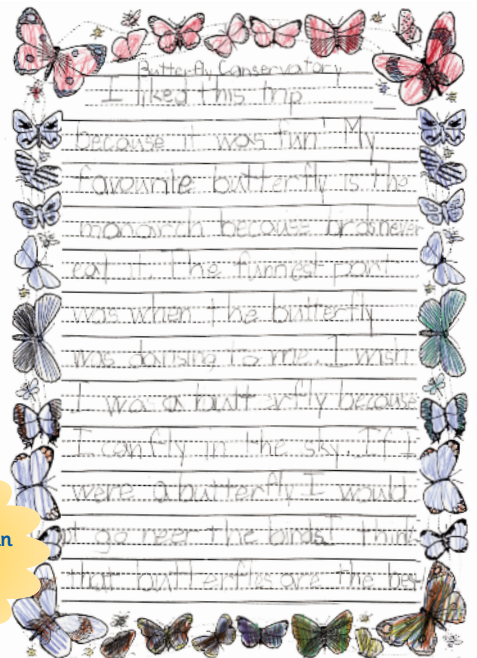 Butterfly Conservatory
I liked this trip
because it was fun! My
favourite butterfly is the
monarch because birds never
eat it. The funnest part
was when the butterfly
was dansing to me. I wish
I was a butt erfly because
I can fly in the sky. If I
were a butterfly I would
ot go neer the birds I think
that butterflies are the bes